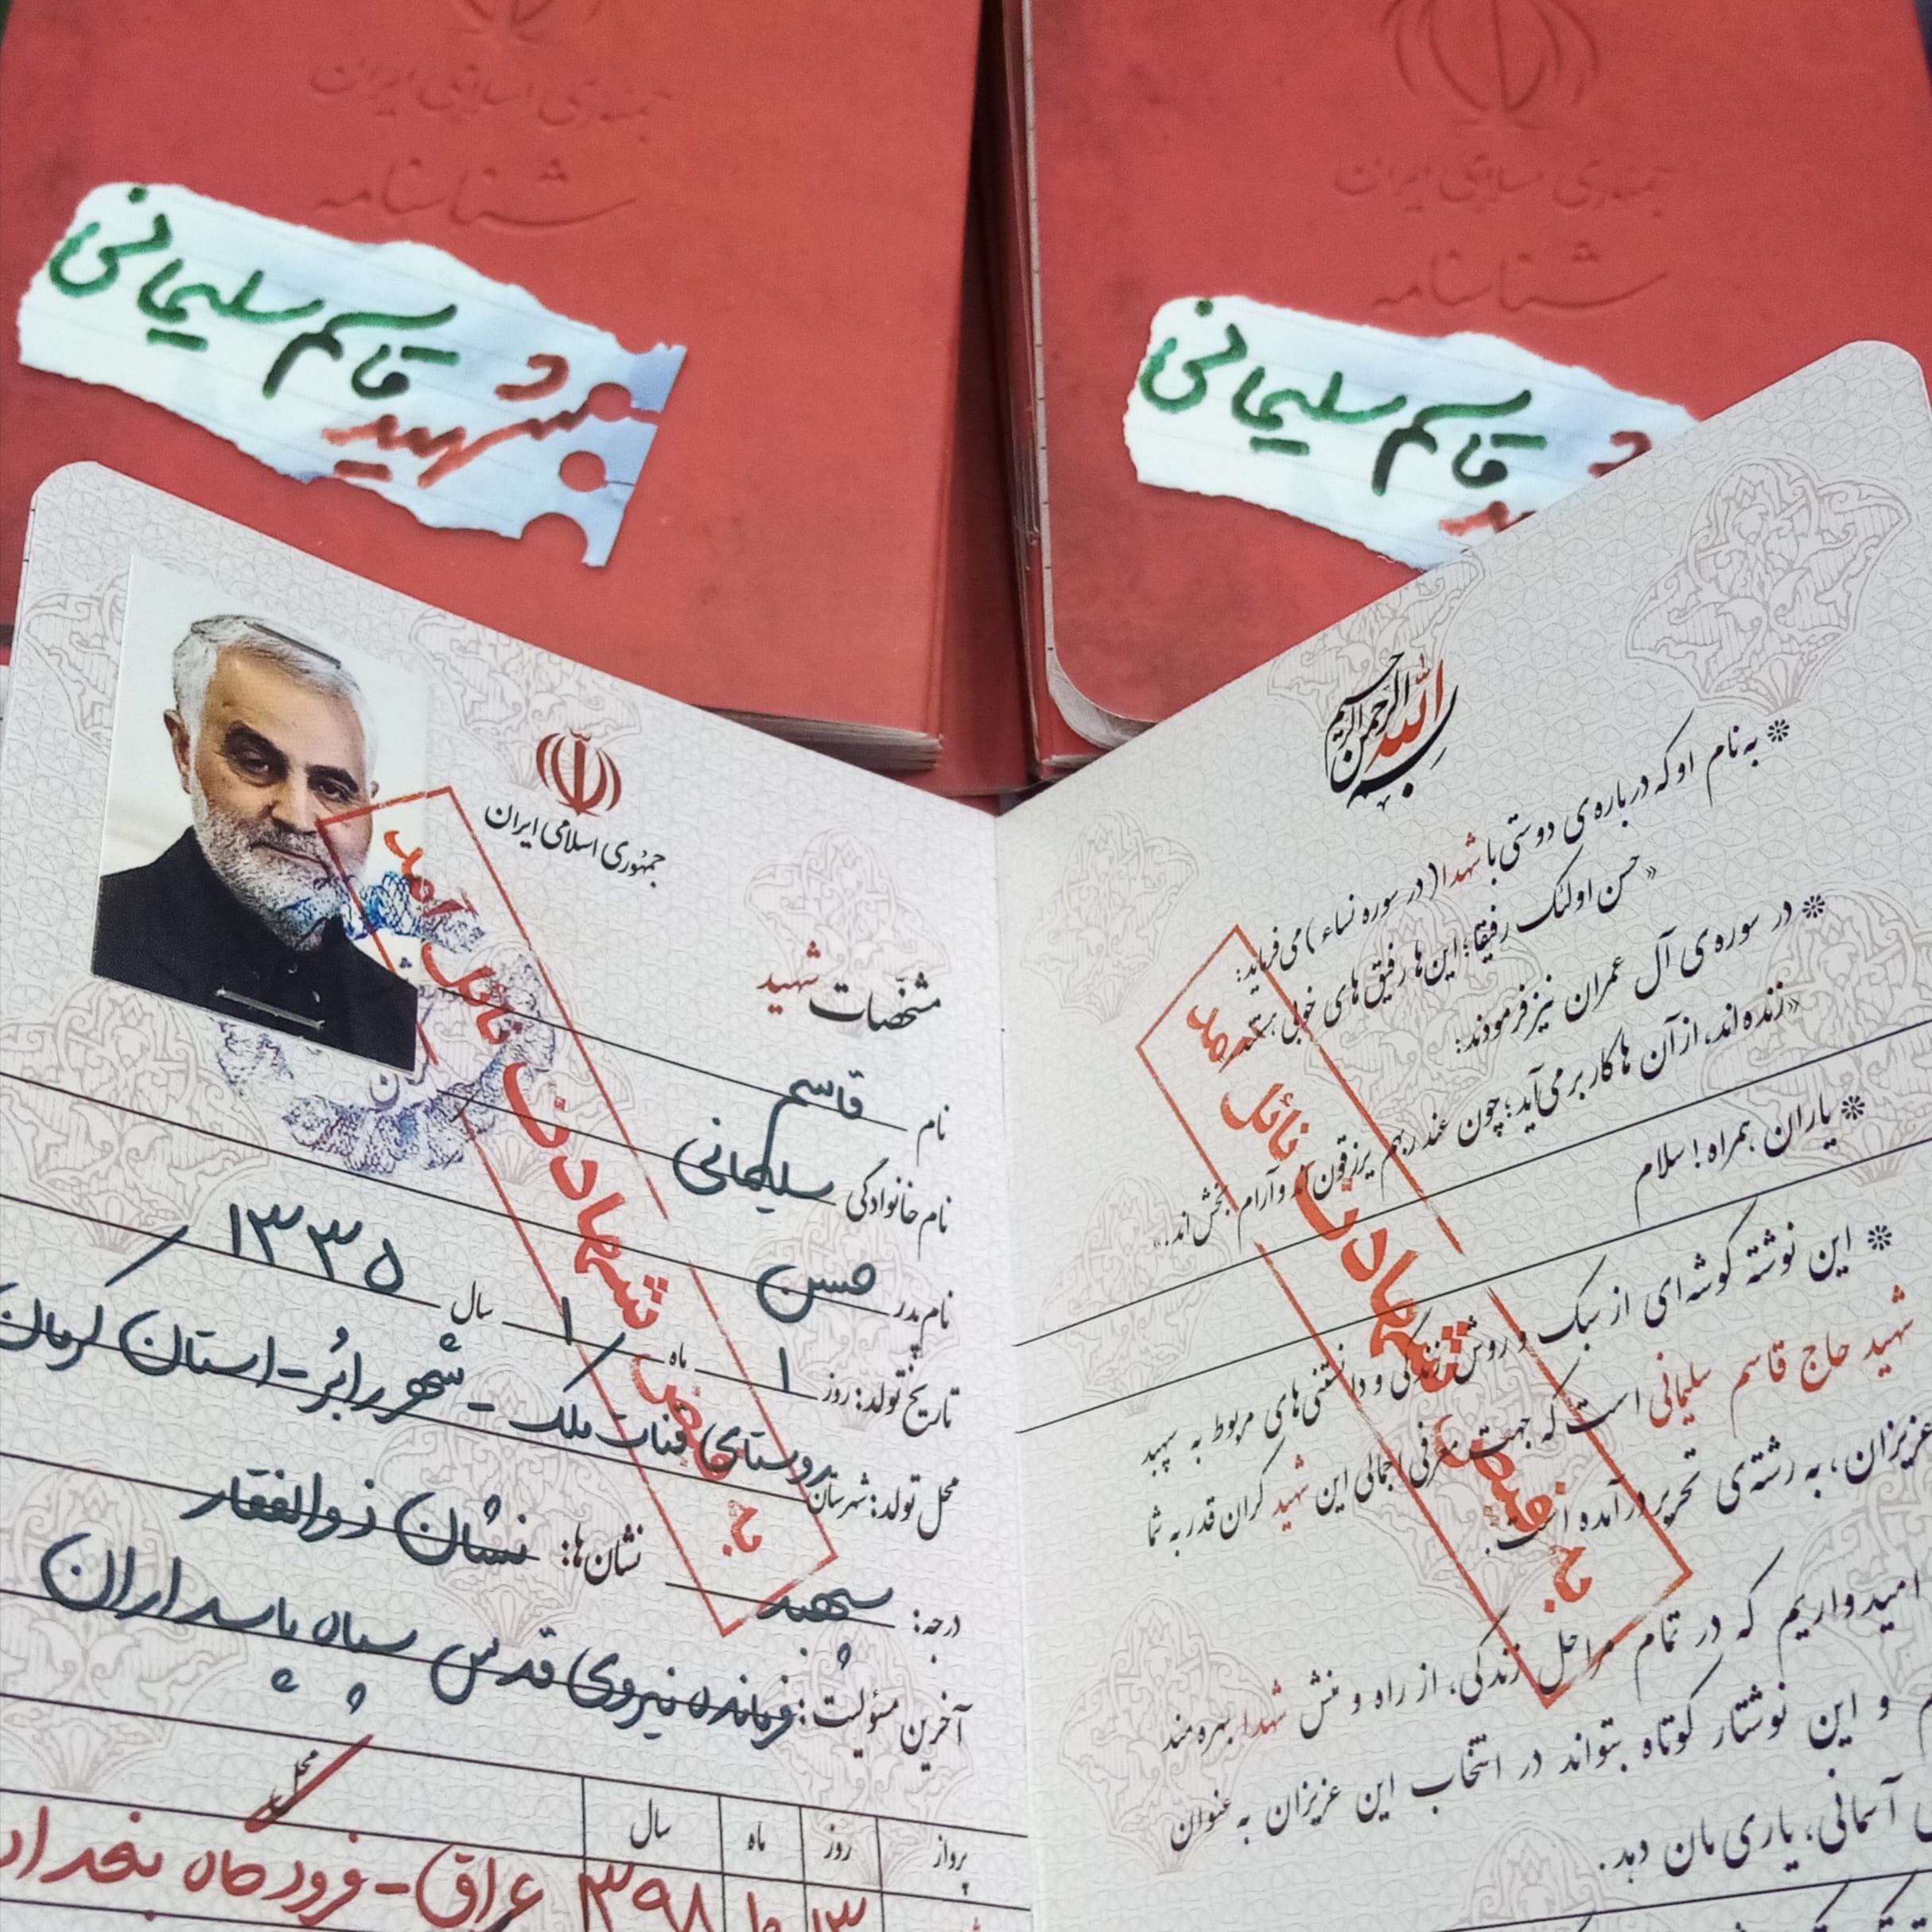 جمهوری اسلامی ایران
شناسنامه
شهید قاسم سلیمانی
جمهوری اسلامی ایران
شناسنامه
قاسم سلیمانی
بسم الله الرحمن الرحیم
* به نام او که درباره‌ی دوستی با شهدا (در سوره نساء) می‌فرماید:
«حسن اولئک رفیقا؛ این‌ها رفیق‌های خوبی هستند»
* در سوره‌ی آل عمران نیز فرمودند:
«زنده‌اند، از آن‌ها کار بر می‌آید؛ چون عند ربهم یرزقون‌اند و آرام بخش‌اند.»
* یاران همراه! سلام
* این نوشته گوشه‌ای از سبک و روش زندگی و دانستنی‌های مربوط به سپهبد
شهید حاج قاسم سلیمانی است که جهت معرفی اجمالی این شهید گران قدر به شما
عزیزان، به رشته‌ی تحریر درآمده است.
امیدواریم که در تمام مراحل زندگی، از راه و منش شهدا بهره‌مند
و این نوشتار کوتاه بتواند در انتخاب این عزیزان به عنوان
آسمانی، یاری مان دهد.
به فیض شهادت نائل آمد
جمهوری اسلامی ایران
مشخصات شهید
نام قاسم
نام خانوادگی سلیمانی
نام پدر حسن
تاریخ تولد: روز ۱ ماه ۱ سال ۱۳۳۵
محل تولد: شهرستان روستای قنات ملک - شهر رابُر - استان کرمان
درجه: سپهبد نشان‌ها: نشان ذوالفقار
آخرین مسئولیت: فرمانده نیروی قدس سپاه پاسداران
پرواز روز ماه سال محل
۱۳ ۱۰ ۱۳۹۸ عراق - فرودگاه بغداد
به فیض شهادت نائل آمد